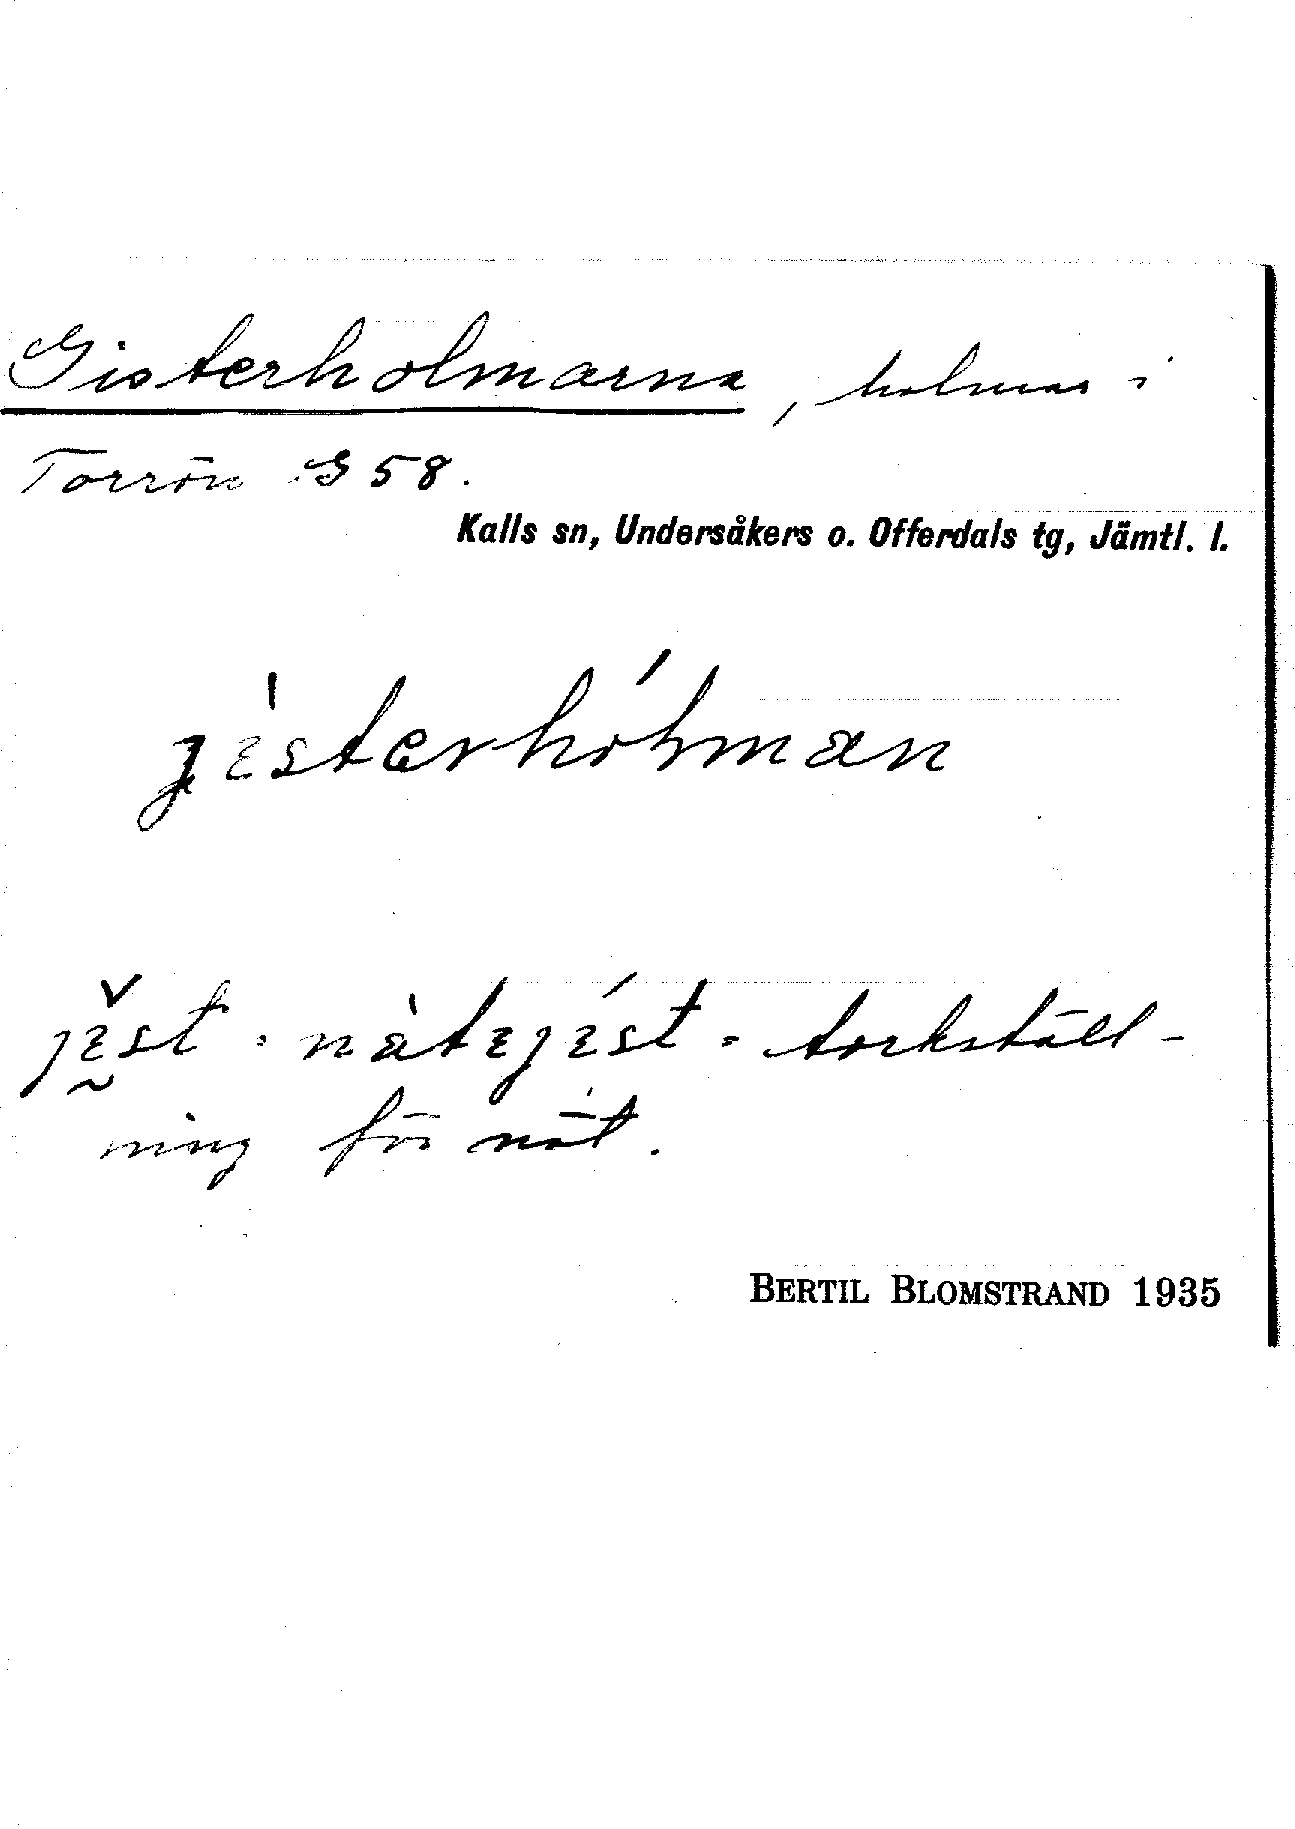 Gisterholmarna, holmar i
Torrön G 58.
Kalls sn, Undersåkers o. Offerdals tg, Jämtl. l.
jìsterhólman
jìst = nàtejíst = torkställ-
ning för nät.
BERTIL BLOMSTRAND 1935